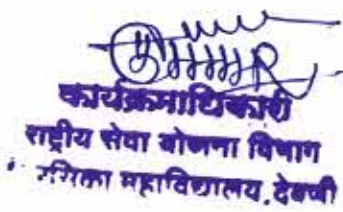 कार्यक्रमाधिकारी
राष्ट्रीय सेवा योजना विभाग
रसिका महाविद्यालय, देवणी